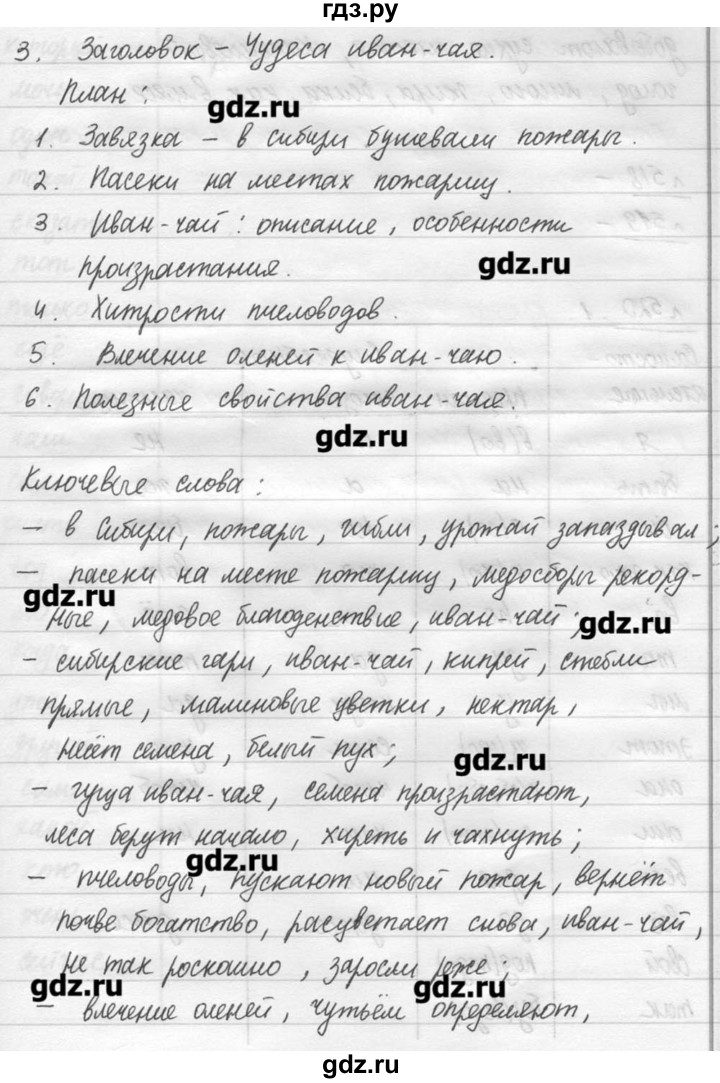 гдз.ру
3. Заголовок – Чудеса иван-чая.
План:
gdz.ru
1. Завязка – в сибири бушевали пожары.
2. Пасеки на местах пожарищ.
3. Иван-чай: описание, особенности
произрастания.
gdz.ru
4. Хитрости пчеловодов.
5. Влечение оленей к иван-чаю.
6. Полезные свойства иван-чая.
gdz.ru
Ключевые слова:
– в Сибири, пожары, гибли, урожай запаздывал;
– пасеки на месте пожарищ, медосборы рекорд-
gdz.ru
ные, медовое благоденствие, иван-чай;
gdz.ru
– сибирские гари, иван-чай, кипрей, стебли
прямые, малиновые цветки, нектар,
несёт семена, белый пух;
gdz.ru
– гуща иван-чая, семена произрастают,
леса берут начало, хиреть и чахнуть;
gdz.ru
– пчеловоды, пускают новый пожар, вернёт
почве богатство, расцветает снова, иван-чай,
не так роскошно, заросли реже,
gdz.ru
gdz.ru
– влечение оленей, чутьём определяют,
gdz.ru